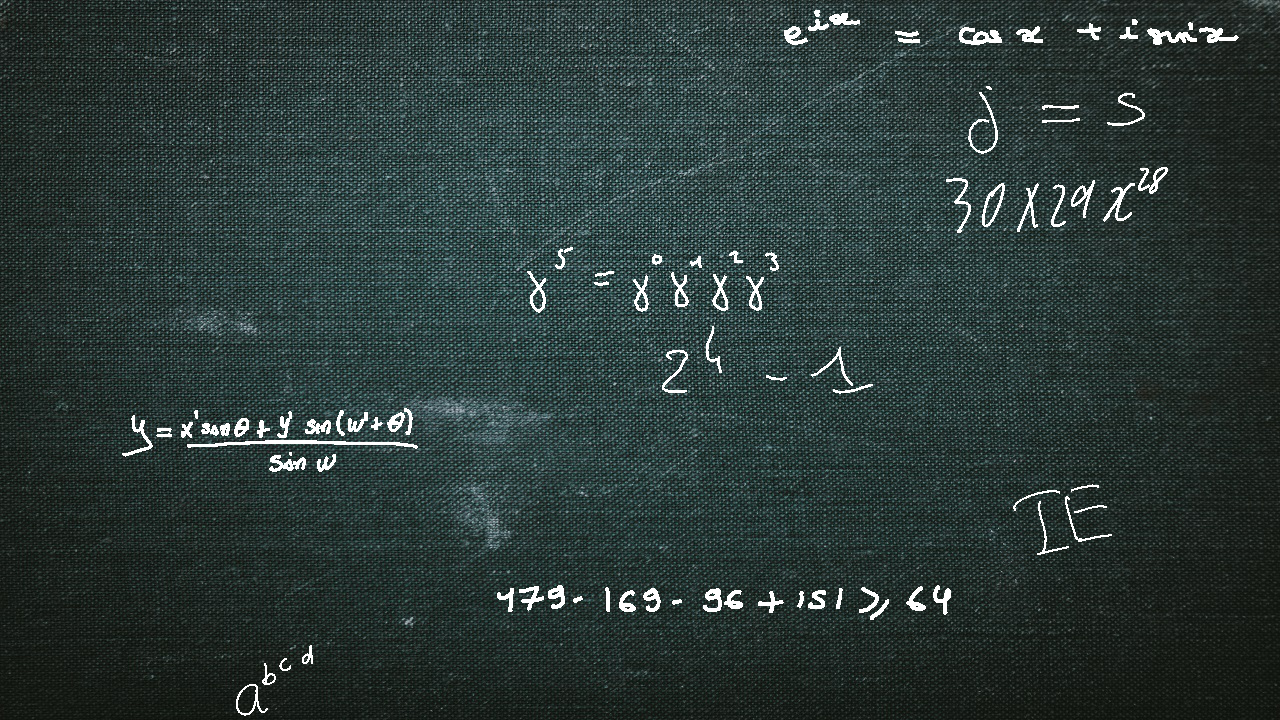 e^{ix} = cos x + i sin x
j = s
30 X 29 x^{28}
γ^5 = γ^0 γ^1 γ^2 γ^3
2^4 - 1
y = \frac{x' sin θ + y' sin(w' + θ)}{sin w}
IE
479 - 169 - 96 + 151 ≥ 64
a^{b^{c^{d}}}